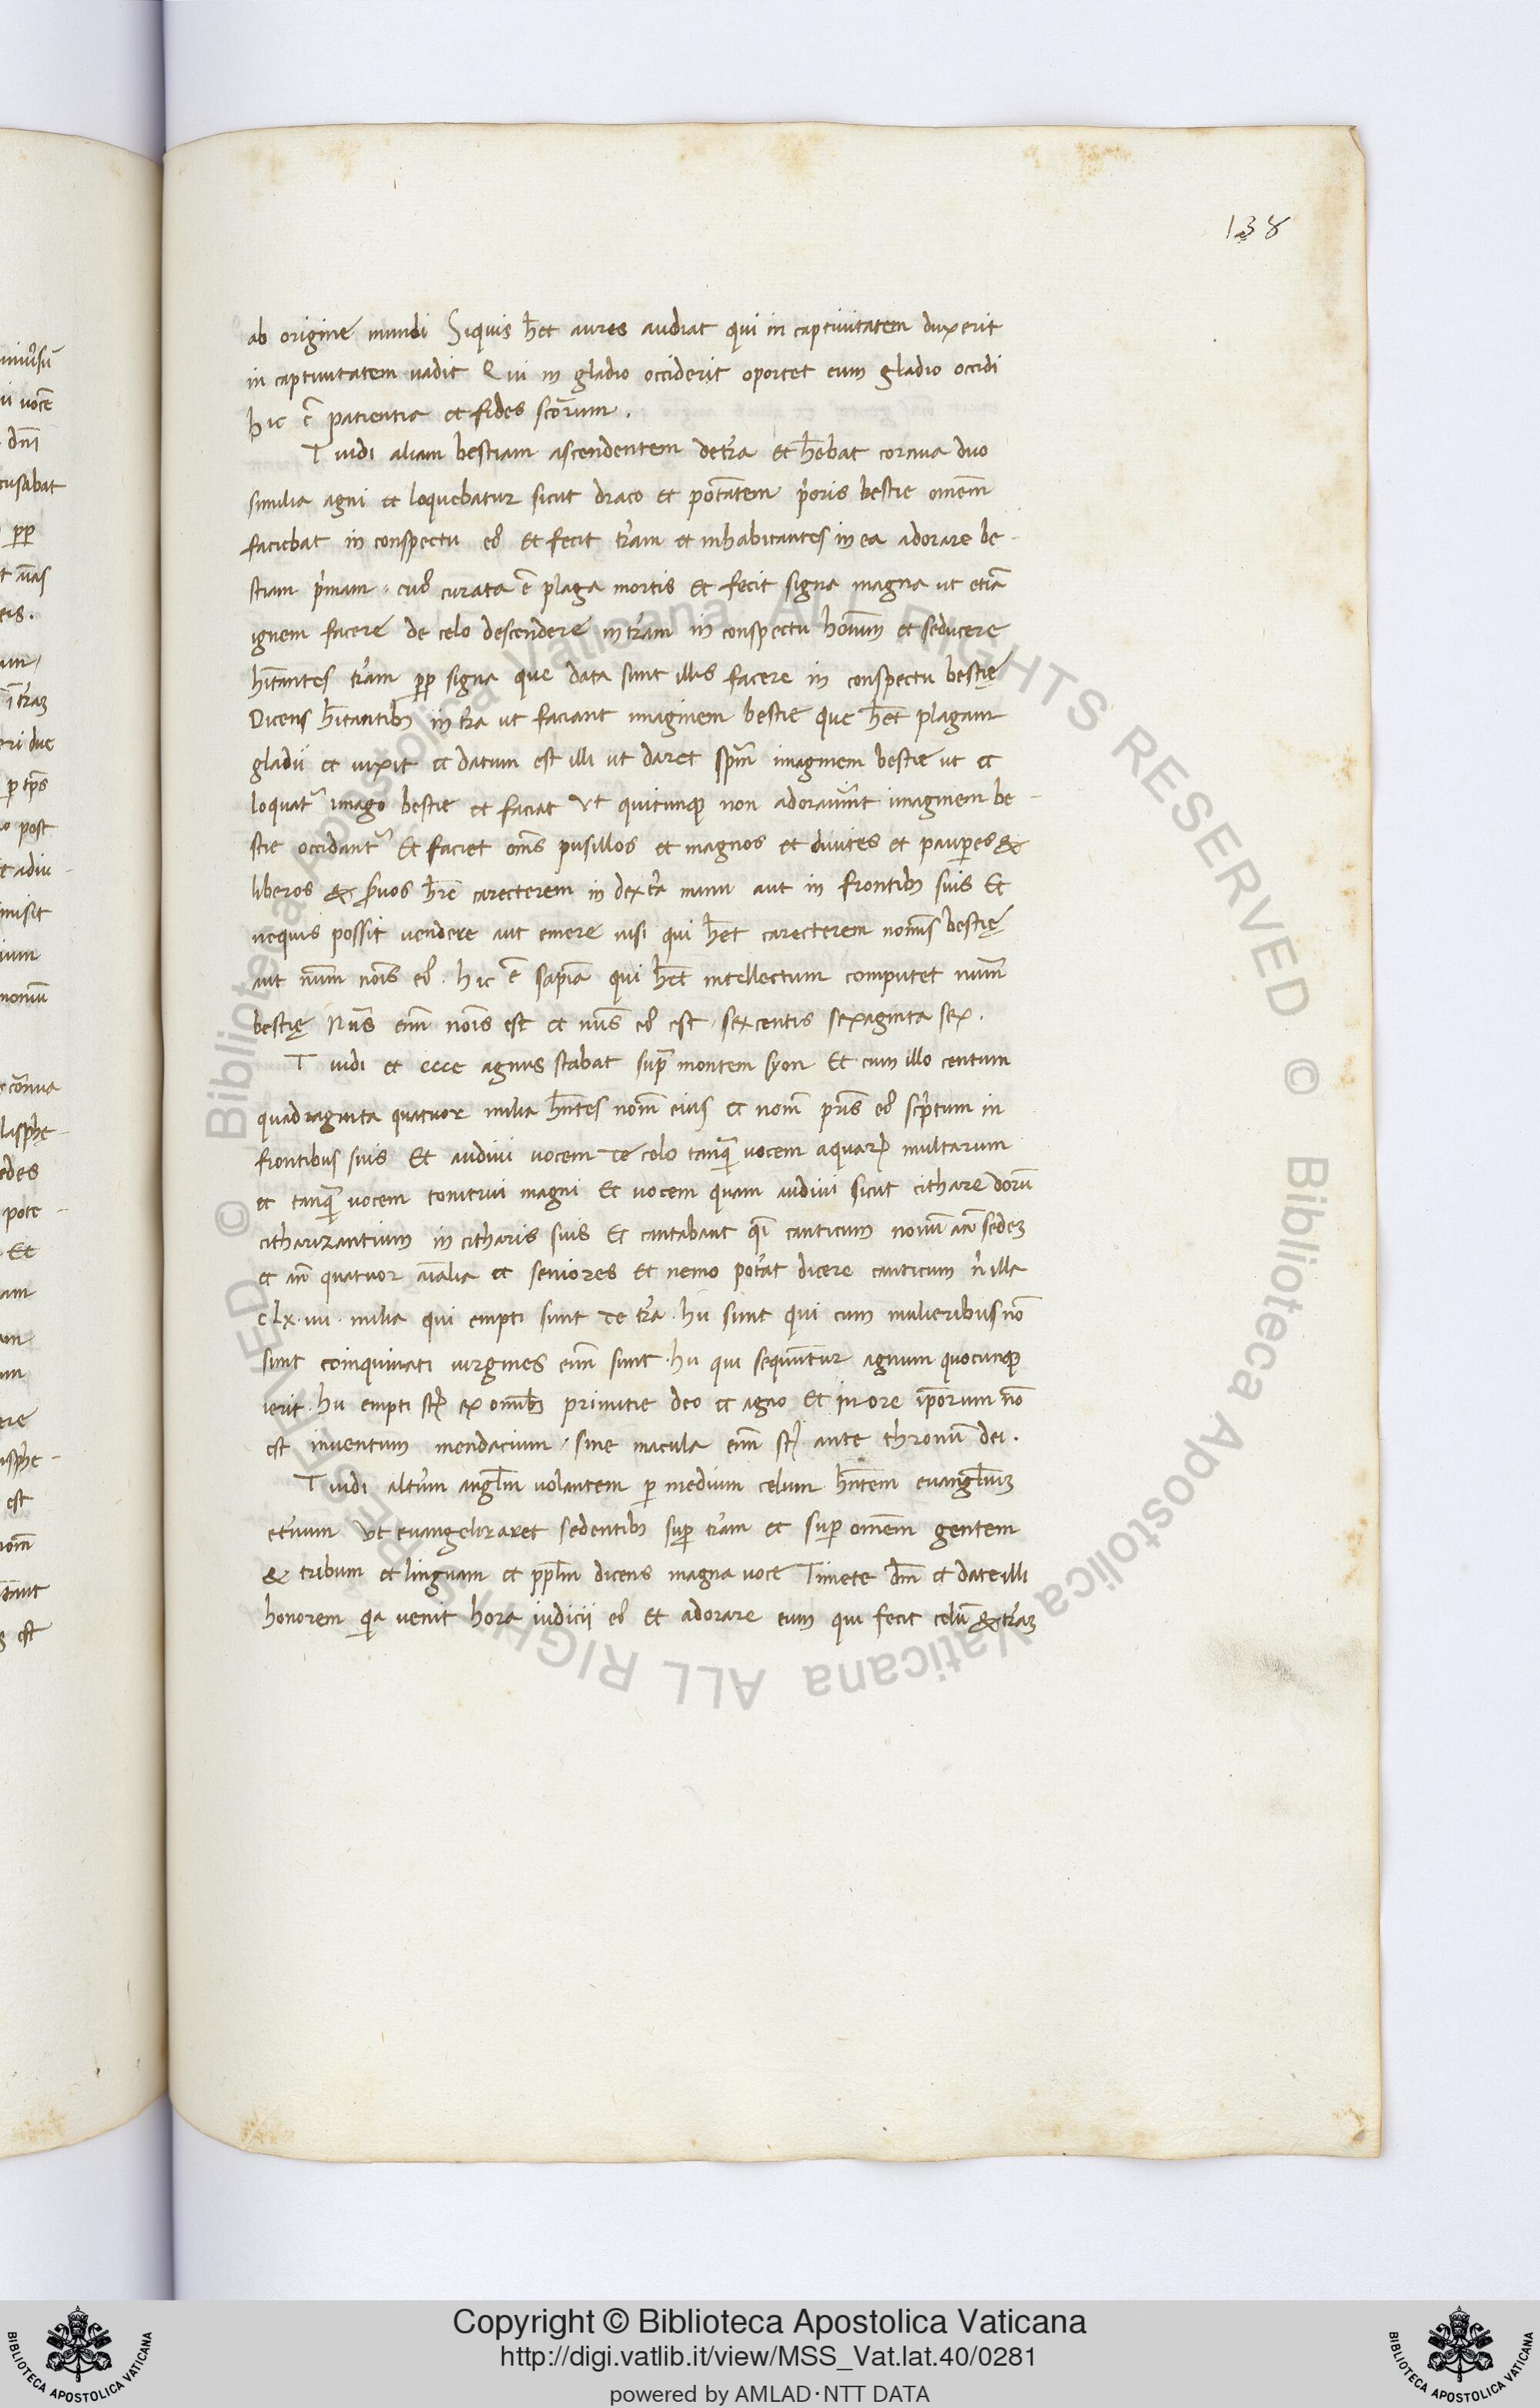 138
ab origine mundi Siquis h̄et aures audiat qui in captiuitatem duxerit
in captiuitatem uadit Qui in gladio occiderit oportet eum gladio occidi
hic ē patientia et fides sc̄orum.
T uidi aliam bestiam ascendentem det̄ra et h̄ebat cornua duo
similia agni et loquebatur sicut draco et potātem p̄oris bestie omēm
faciebat in conspectu eꝰ et fecit tr̄am et inhabitantes in ea adorare be-
stiam p̄mam. cuꝰ curata ē plaga mortis et fecit signa magna ut etiā
ignem facere de celo descendere in tr̄am in conspectu hoīum et seducere
h̄itantes tr̄am pp signa que data sunt illis facere in conspectu bestię
Dicens h̄itantibꝫ in tr̄a ut faciant imaginem bestie que h̄et plagam
gladii et uixit et datum est illi ut daret sp̄m imaginem bestie ut et
loquatᷣ imago bestie et faciat Vt quicunqꝫ non adorauūt imaginem be-
stie occidantᷣ Et faciet oms̄ pusillos et magnos et diuites et paup̄es &
liberos & s̄uos h̄re carecterem in dext̄a manu aut in frontibꝫ suis Et
nequis possit uendere aut emere nisi qui h̄et carecterem nomīs bestię
aut nūm noīs eꝰ. hic ē sapīa qui h̄et intellectum computet nūm
bestię Nūs em̄ noīs est et nūs eꝰ est. sexcentis sexaginta sex.
T uidi et ecce agnus stabat supᷓ montem syon Et cum illo centum
quadraginta quatuor milia h̄ntes nom̄ eius et nom̄ pr̄is eꝰ sc̄ptum in
frontibus suis Et audiui uocem de celo tanqᷓ uocem aquaꝝ multarum
et tanqᷓ uocem tonitrui magni Et uocem quam audiui sicut cithare dorū
citharizantium in citharis suis Et cantabant qī canticum nouū an̄ sedeꝫ
et an̄ quatuor aīalia et seniores Et nemo potāt dicere canticum n̄ illa
clx.iiii. milia qui empti sunt de tr̄a. hii sunt qui cum mulieribus nō
sunt coinquinati uirgines em̄ sunt. hii qui sequūtur agnum quocunqꝫ
ierit. hii empti st̄ ex omībꝫ primitie deo et agno Et in ore ip̄orum nō
est inuentum mendacium. sine macula em̄ st̄ ante thronū dei.
T uidi altūm angl̄m uolantem p medium celum h̄ntem euangl̄iuꝫ
et̄num Vt euangelizaret sedentibꝫ sup tr̄am et sup omēm gentem
& tribum et linguam et ppl̄m dicens magna uoce Timete dn̄m et date illi
honorem qia uenit hora iudicii eꝰ Et adorare eum qui fecit celū & tr̄aꝫ
Copyright © Biblioteca Apostolica Vaticana
http://digi.vatlib.it/view/MSS_Vat.lat.40/0281
powered by AMLAD·NTT DATA
BIBLIOTECA APOSTOLICA VATICANA
BIBLIOTECA APOSTOLICA VATICANA
© Biblioteca Apostolica Vaticana ALL RIGHTS RESERVED © Biblioteca Apostolica Vaticana ALL RIGHTS RESERVED